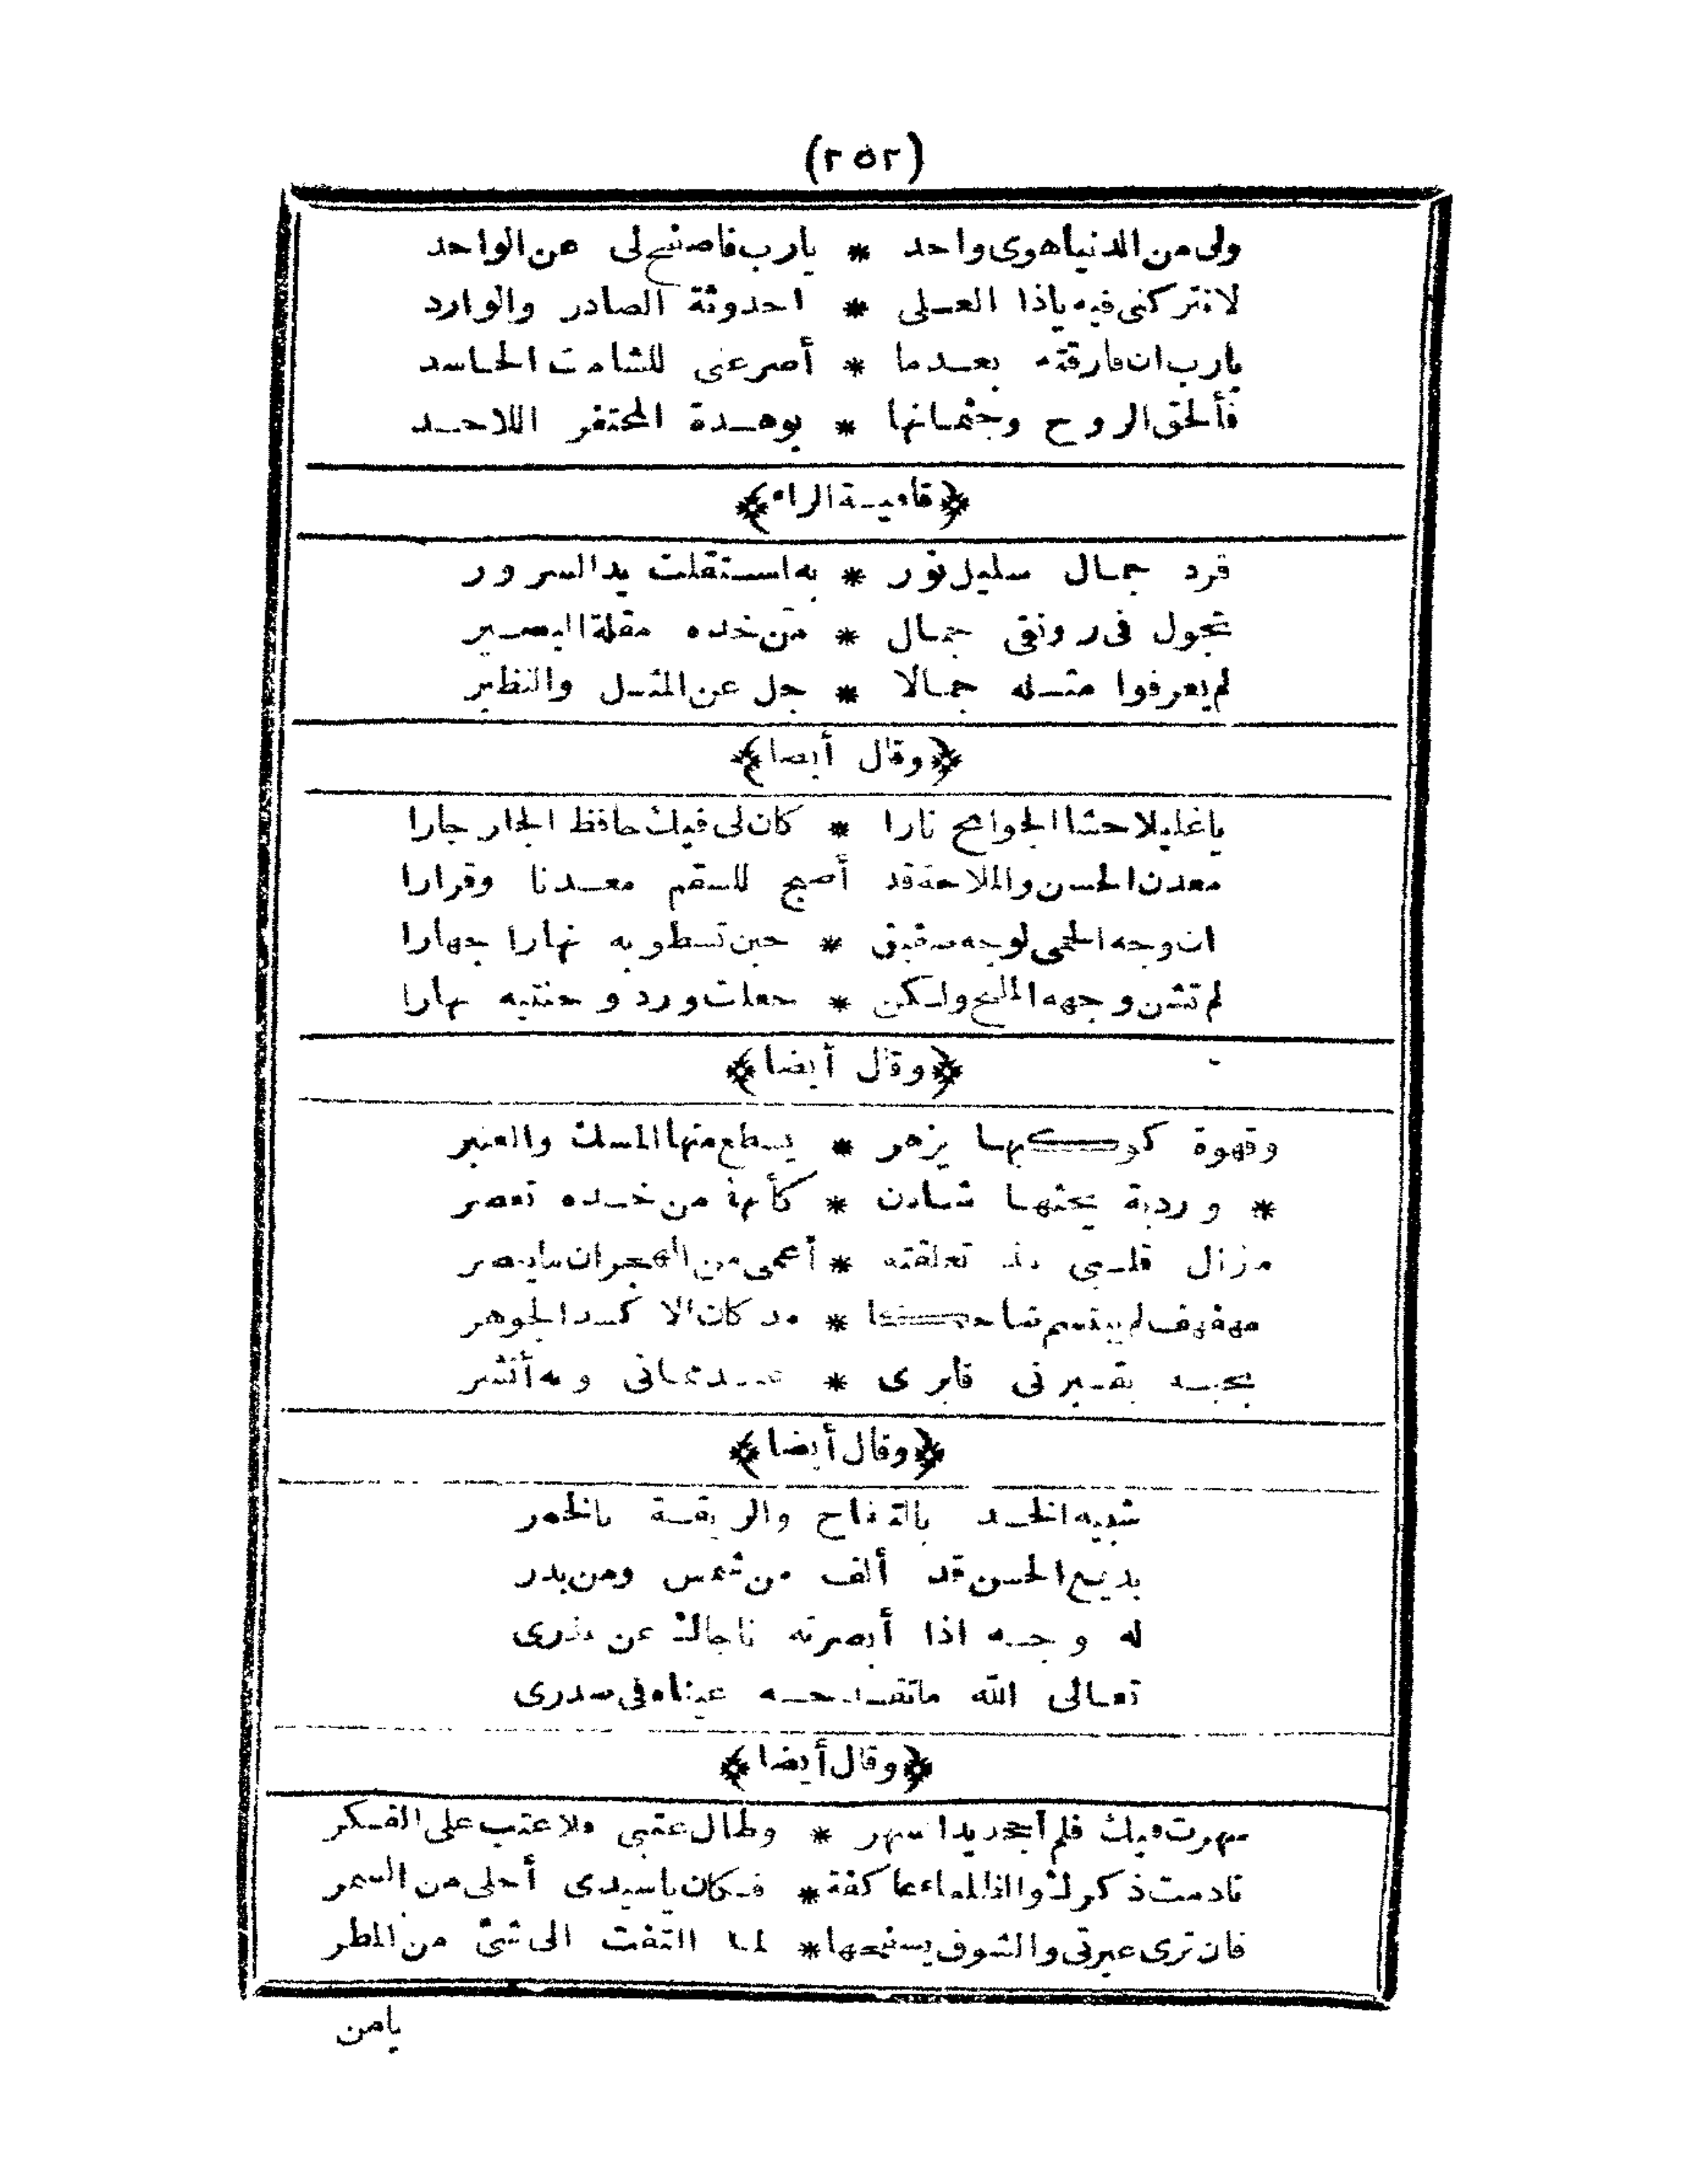 (٢٥٢)
ولى من الدنيا هوى واحد * يارب فاصفح لى عن الواحد
لا تتركنى فيه ياذا العلى * احدوثة الصادر والوارد
يارب ان فارقته بعدما * أضرعنى للشامت الحاسد
فألحق الروح وجثمانها * بوهدة المحتفر اللاحد
﴿قافية الراء﴾
فرد جمال سليل نور * به استقلت يد السرور
تجول فى رونق جمال * من خده مقلة البصير
لم يعرفوا مثله جمالا * جل عن المثل والنظير
﴿وقال أيضا﴾
يا غليلا حشا الجوانح نارا * كان لى فيك حافظ الجار جارا
معدن الحسن والملاحة قد أصبح للسقم معدنا وقرارا
ان وجه الحمى لوجه صفيق * حين تسطو به نهارا جهارا
لم تشن وجهه المليح ولكن * جعلت ورد وجنتيه بهارا
﴿وقال أيضا﴾
وقهوة كوكبها يزهر * يسطع منها المسك والعنبر
* وردية يحثها شادن * كأنها من خده تعصر
مازال قلبى مذ تعلقته * أعمى من الهجران مايبصر
مهفهف لم يبتسم ضاحكا * مذ كان الا كسد الجوهر
بحبه يقبرنى قابرى *
﴿وقال أيضا﴾
شبيه الخد بالتفاح والريقة بالخمر
بديع الحسن قد ألف من شمس ومن بدر
له وجه اذا أبصرته ناجاك عن عذرى
تعالى الله ماتقدحه عيناه فى صدرى
﴿وقال أيضا﴾
سهرت فيك فلم أجحد يدا سهر * وطال عتبى ولا عتب على الفكر
نادمت ذكرك والظلماء عاكفة * فكان ياسيدى أحلى من السمر
فان ترى عبرتى والشوق يسفحها * لما التفت الى شئ من المطر
يامن